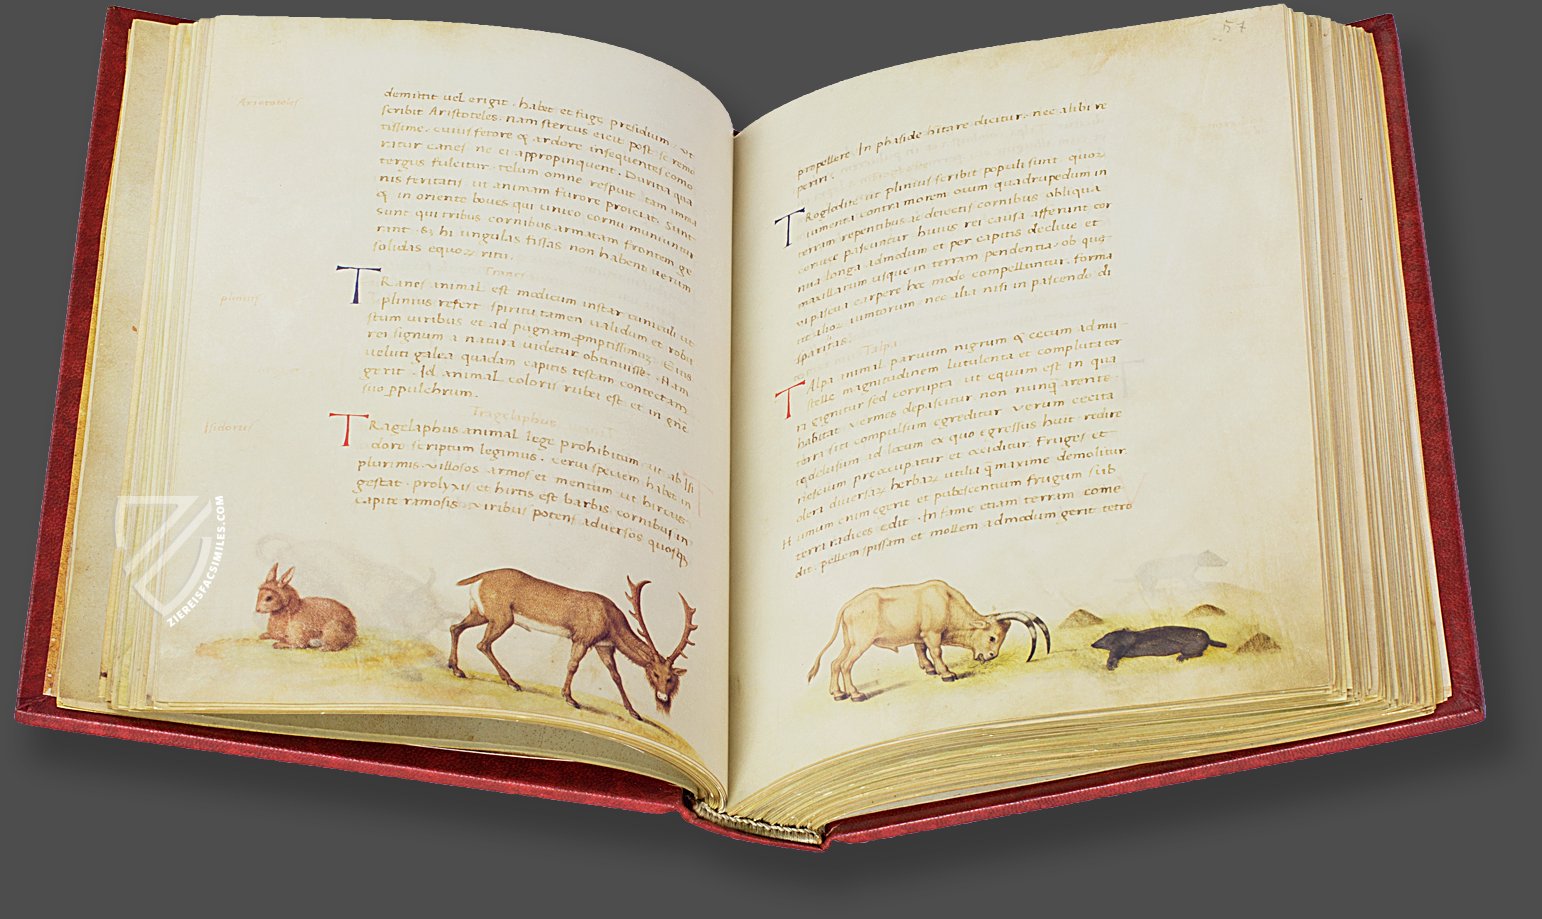 Aristoteles
demittit uel erigit. habet et fuge presidium. ut
scribit Aristoteles. nam stercus eicit post se remo
tissime. cuius fetore & ardore insequentes como
ratur canes ne ei appropinquent. Durina qua
tergus fulcitur. telum omne respuit tam imma
nis feritatis. ut animam furore proiciat. Sunt
& in oriente boues qui unico cornu muniuntur
sunt qui tribus cornibus armatam frontem ge
rant. & hi ungulas fissas non habent uerum
solidas equoꝝ ritu.
Tranes
plinius
TRanes animal est modicum instar cuniculi ut
plinius refert. spiritu tamen ualidum et robu
stum uiribus et ad pugnam promptissimum. Eius
rei signum a natura uidetur obtinuisse. Nam
ueluti galea quadam capitis testam contectam
gerit. Id animal coloris rubei est. et in gñe
suo ꝓpulchrum.
Tragelaphus
Isidorus
TRagelaphus animal lege prohibitum. ut ab Isi
doro scriptum legimus. cerui speciem habet in
plurimis. Villosos armos et mentum ut hircus
gestat. prolyxis et hirtis est barbis. cornibus in
capite ramosis. uiribus potens aduersos quosqꝫ
ZIEREISFACSIMILES.COM
57
propellere. In phaside hitare dicitur. nec alibi re
periri.
TRoglodite. ut plinius scribit populi sunt. quoꝝ
iumenta contra morem ouium quadrupedum in
terram repentibus ac deiectis cornibus obliqua
ceruice pascuntur huius rei causa afferunt cor
nua longa admodum et per capitis decliue et
maxillarum usque in terram pendentia. ob que
ut pascua carpere hoc modo compelluntur. forma
ut alioꝝ iumtorum. nec alia nisi in pascendo di
sparitas.
Talpa
TAlpa animal paruum nigrum & cecum ad mu
stelle magnitudinem lutulenta et complutater
ra gignitur sed corrupta. ut equium est in qua
habitat. Vermes depascitur non nunq̃ arente
terra siti compulsum egreditur. Verum cecita
te delusum ad locum ex quo egressus fuit redire
nescium preoccupatur et occiditur. Fruges et
olera diuersaꝝ herbaꝝ utilia q̃maxime demolitur.
Humum enim egerit et pubescentium frugum sub
terra radices edit. In fame etiam terram come
dit. pellem spissam et mollem admodum gerit tetro